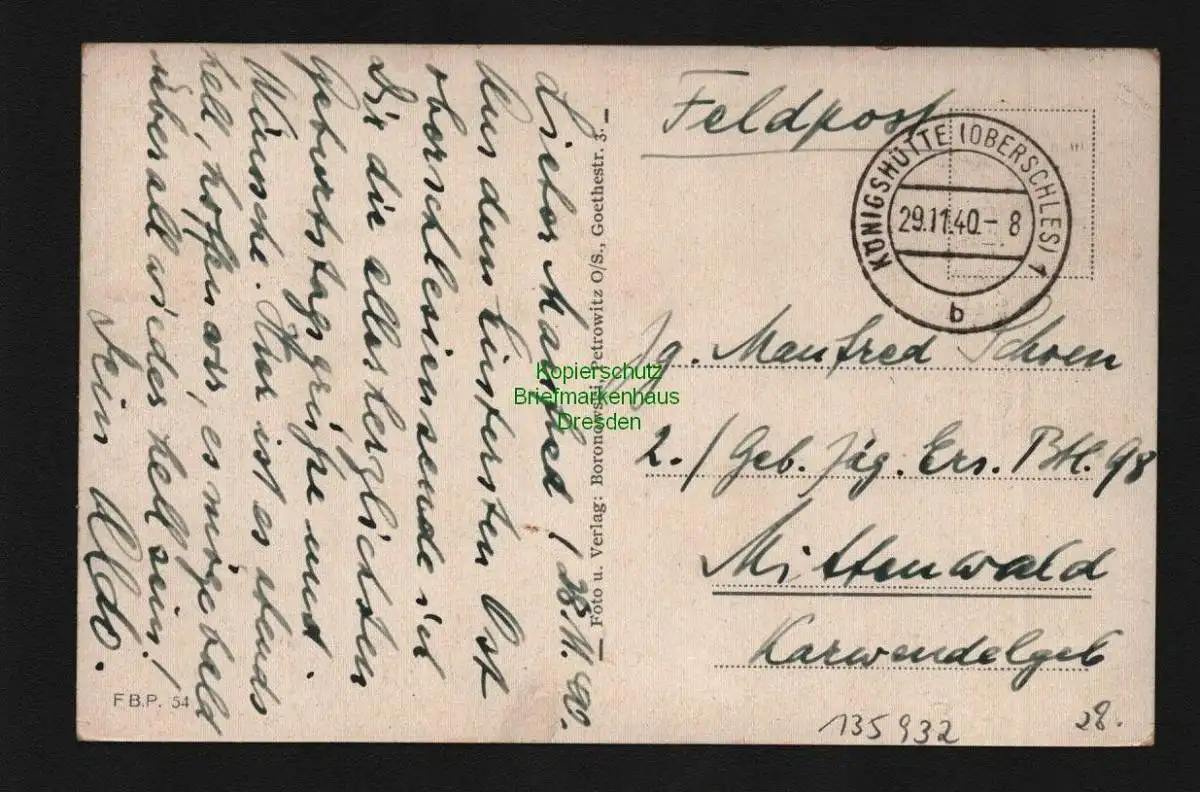 Lieber Manfred! 28.11.40.
Aus dem finstersten Ost
oberschlesien sende ich
Dir die allerherzlichsten
Geburtstagsgrüße und
Wünsche. Hier ist es abends
hell, hoffen wir, es möge bald
überall wieder hell sein!
Dein Aldo.
F.B.P. 54
Foto u. Verlag: Boronowski, Petrowitz O/S., Goethestr. 3.
Feldpost
KÖNIGSHÜTTE (OBERSCHLES) 1
29.11.40.- 8
b
Jg. Manfred Schoen
2./Geb. Jäg. Ers. Btl. 98
Mittenwald
Karwendelgeb
135932
28.
Kopierschutz
Briefmarkenhaus
Dresden